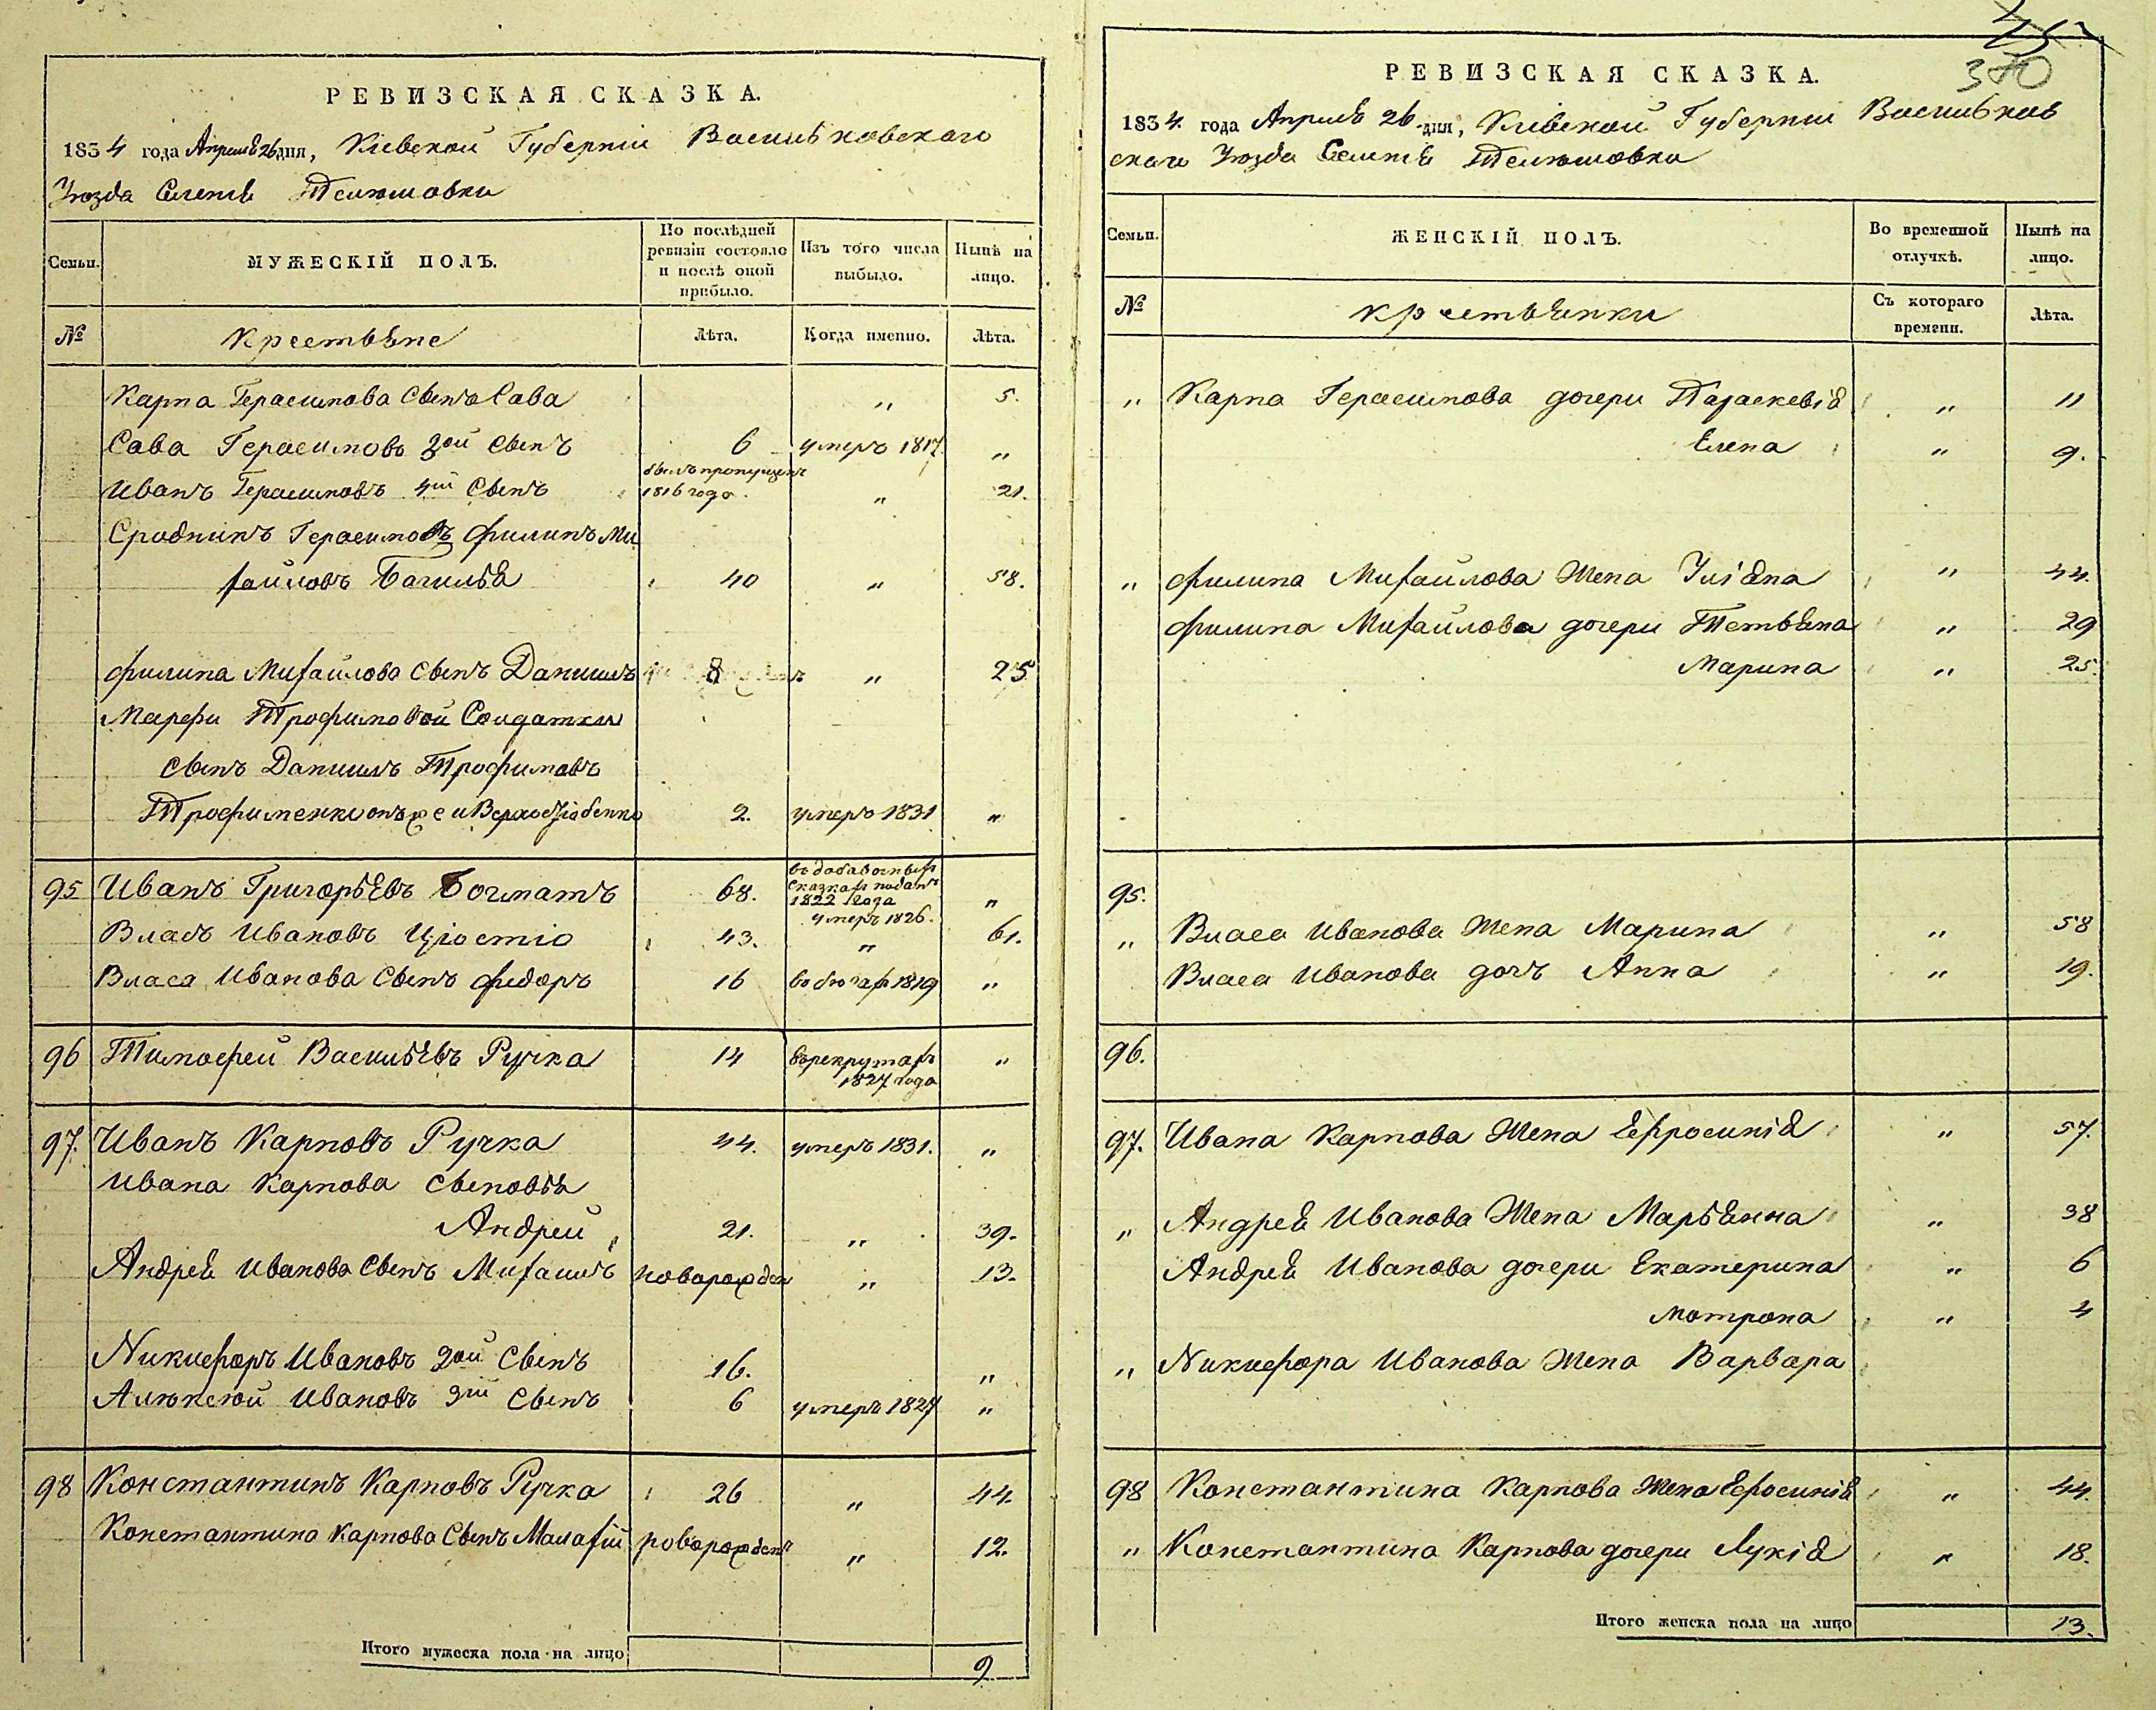 РЕВИЗСКАЯ СКАЗКА.
1834 года Апреля 26 дня, Кіевской Губерніи Васильковскаго
Уѣзда Селенія
Семьи.
МУЖЕСКІЙ ПОЛЪ.
По послѣдней ревизіи состояло и послѣ оной прибыло.
Изъ того числа выбыло.
Нынѣ на лицо.
№
Крестьяне
Лѣта.
Когда именно.
Лѣта.
Карпа Герасимова Сынъ Сава " 5.
Сава Герасимовъ 3ой Сынъ 6 умеръ 1817 "
былъ пропущенъ
Иванъ Герасимовъ 4ый Сынъ 1816 года. " 21.
Сродникъ Герасимовъ Филипъ Ми
хайловъ 40 " 58.
Филипа Михайлова Сынъ Даниилъ 8 " 25
Марфи Трофимовой Солдатки
Сынъ Даниилъ Трофимовъ
Трофименко онъ же и 2. умеръ 1831 "
95 Иванъ Григорьевъ 68. въ добавочныхъ
сказкахъ поданъ
1822 года "
умеръ 1826.
Власъ Ивановъ 43. " 61.
Власа Иванова Сынъ Федоръ 16 въ бѣгах 1819 "
96 Тимофей Васильевъ Ручка 14 въ рекрутахъ "
1827 года
97. Иванъ Карповъ Ручка 44. умеръ 1831. "
Ивана Карпова Сыновья
Андрей 21. " 39.
Андрея Иванова Сынъ Михаилъ новорожден " 13.
Никифоръ Ивановъ 2ой Сынъ 16. "
Алексѣй Ивановъ 3ій Сынъ 6 умеръ 1827 "
98 Константинъ Карповъ Ручка 26 " 44.
Константина Карпова Сынъ Малафій новорожденъ " 12.
Итого мужеска пола на лицо 9
45
370
РЕВИЗСКАЯ СКАЗКА.
1834 года Апреля 26 дня, Кіевской Губерніи Васильков
скаго Уѣзда Селенія
Семьи.
ЖЕНСКІЙ ПОЛЪ.
Во временной отлучкѣ.
Нынѣ на лицо.
№
Крестьянки
Съ котораго времени.
Лѣта.
" Карпа Герасимова дочери Параскевія " 11
Елена " 9.
" Филипа Михайлова Жена Уліяна " 44.
Филипа Михайлова дочери Тетьяна " 29
Марина " 25.
95.
" Власа Иванова Жена Марина " 58
Власа Иванова дочъ Анна " 19.
96.
97. Ивана Карпова Жена Ефросинія " 57.
" Андрея Иванова Жена Марьянна " 38
Андрея Иванова дочери Екатерина " 6
Мотрона " 4
" Никифора Иванова Жена Варвара
98 Константина Карпова Жена Ефосинія " 44.
" Константина Карпова дочери Лукія " 18.
Итого женска пола на лицо 13.